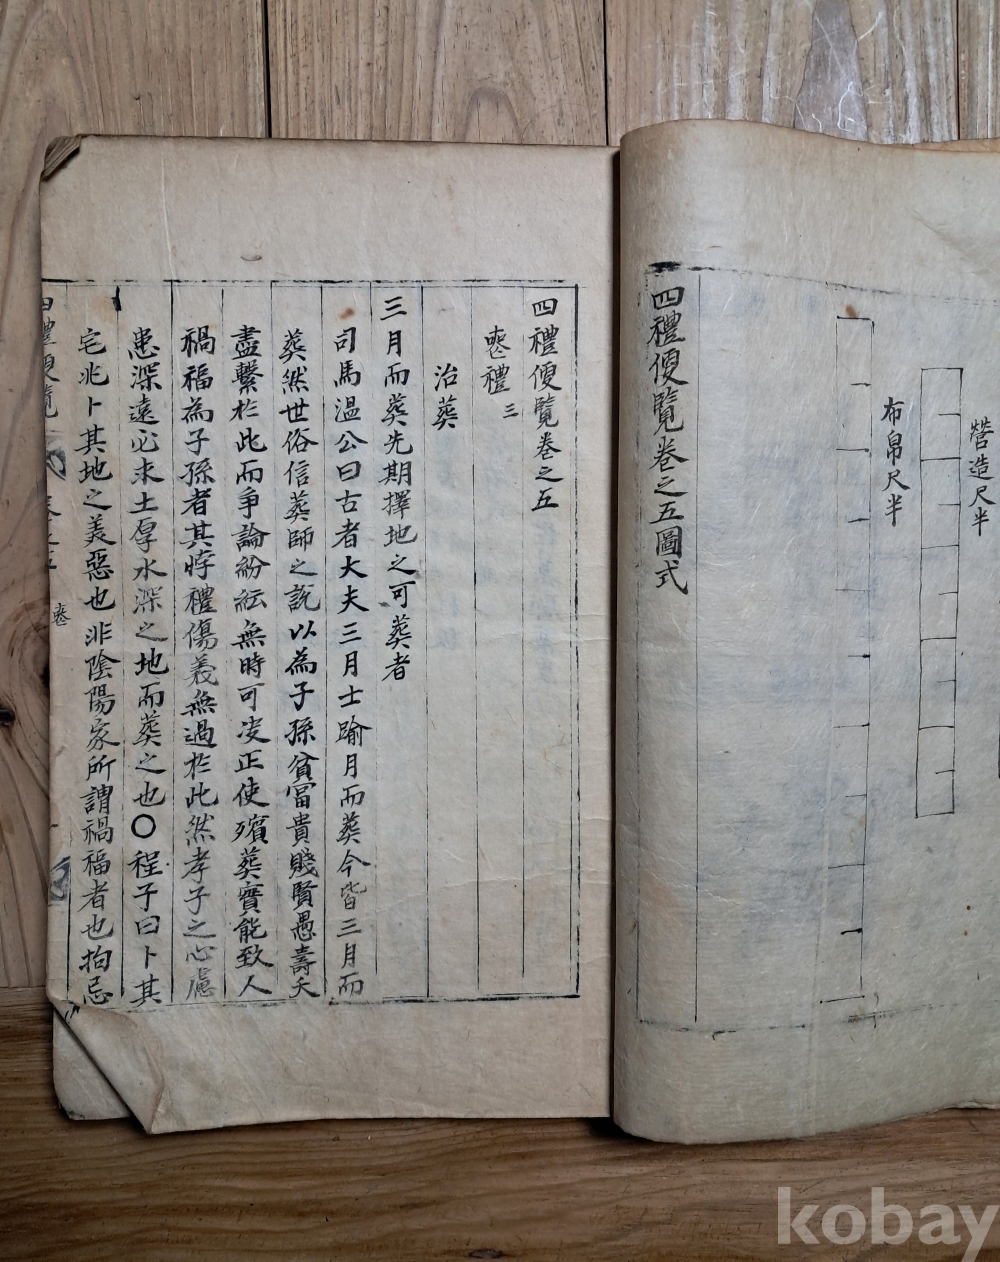 營造尺半
布帛尺半
四禮便覽卷之五圖式
四禮便覽卷之五
喪禮 三
治葬
三月而葬先期擇地之可葬者
司馬溫公曰古者大夫三月士踰月而葬今皆三月而
葬然世俗信葬師之說以為子孫貧富貴賤賢愚壽夭
盡繫於此而爭論紛紜無時可决正使殯葬實能致人
禍福為子孫者其悖禮傷義無過於此然孝子之心慮
患深遠必求土厚水深之地而葬之也〇程子曰卜其
宅兆卜其地之美惡也非陰陽家所謂禍福者也拘忌
四禮便覽 卷之五 喪
kobay